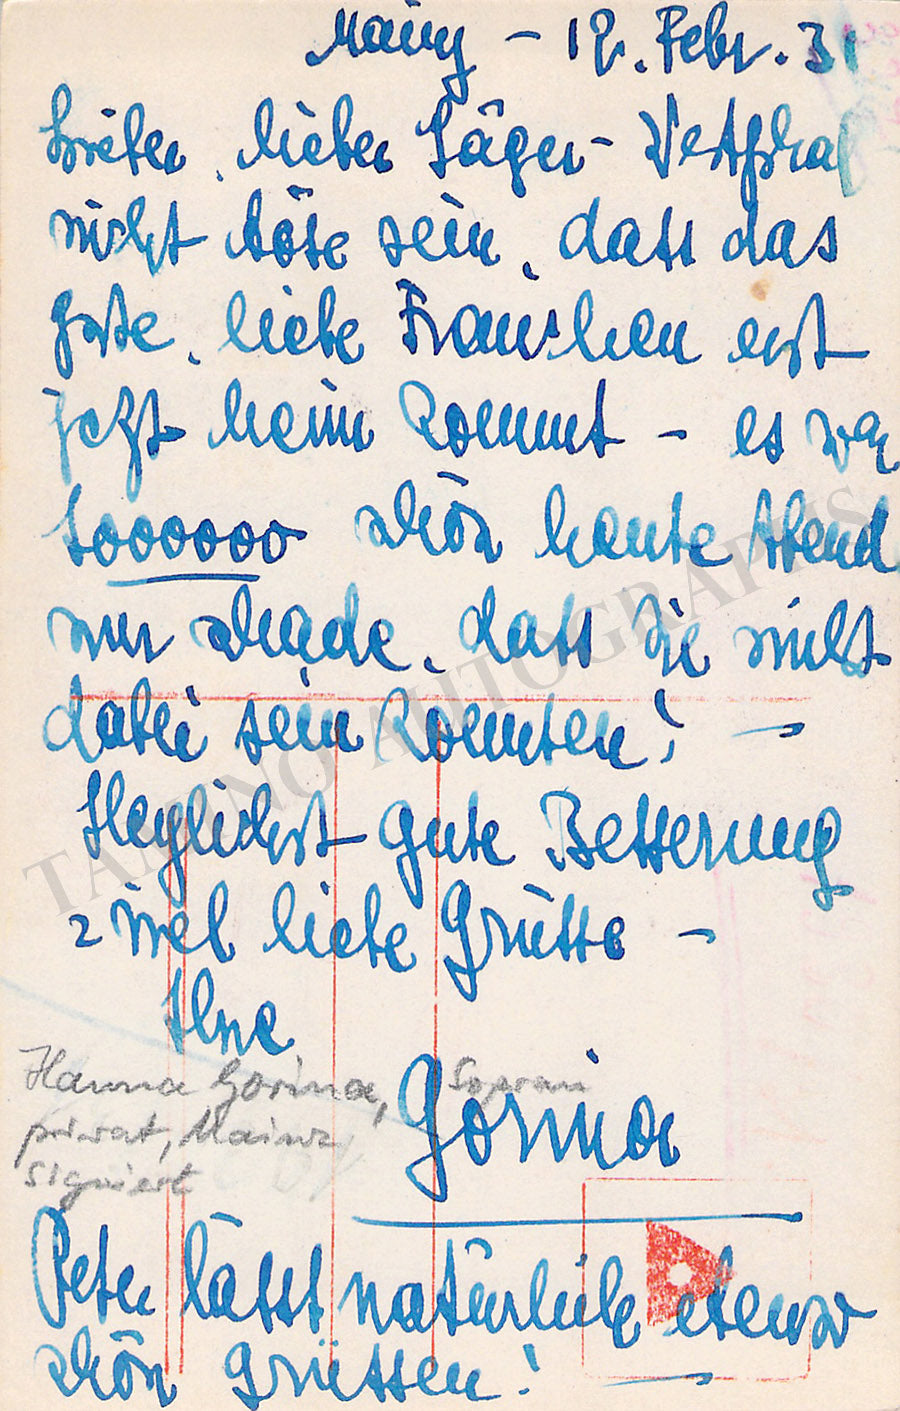 Mainz - 12. Febr. 31
Lieber, lieber Jäger-Westphal
nicht böse sein, dass das
gute, liebe Frauchen erst
jetzt heim kommt - es war
soooooo schön heute Abend
nur schade, dass Sie nicht
dabei sein konnten! -
Herzlichst gute Besserung
u viel liebe Grüsse -
Ihre
Gorina
Hanna Gorina, Sopran
privat, Mainz
signiert
Peter lässt natürlich ebenso
schön grüssen! -
TAMINO AUTOGRAPHS